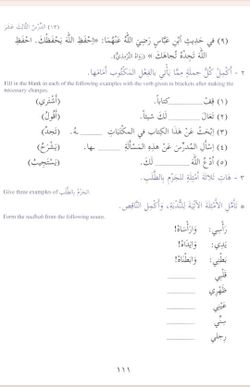 (١٣) الدَّرْسُ الثَّالِثَ عَشَرَ
(٩) في حَدِيثِ ابْنِ عَبَّاسٍ رَضِيَ اللَّهُ عَنْهُمَا: «احْفَظِ اللَّهَ يَحْفَظْكَ. احْفَظِ
اللَّهَ تَجِدْهُ تُجَاهَكَ» (رَوَاهُ التِّرْمِذِيُّ).
٢ - أَكْمِلْ كُلَّ جملةٍ مِمَّا يَأْتِي بالفِعْلِ المَكْتُوبِ أَمَامَهَا.
Fill in the blank in each of the following examples with the verb given in brackets after making the
necessary changes.
(١) قِفْ ________ كتاباً. (أَشْتَرِي)
(٢) تَعَالَ ________ لَكَ شيئاً. (أَقُولُ)
(٣) اِبْحَثْ عَنْ هذَا الكِتابِ في المكْتَبَاتِ ________ ـهُ. (تَجِدُ)
(٤) اِسْأَلِ المُدَرِّسَ عَنْ هَذِهِ المَسْأَلَةِ ________ ـها. (يَشْرَحُ)
(٥) اُدْعُ اللَّهَ ________ لَكَ. (يَسْتَجِيبُ)
٣ - هَاتِ ثَلاثَةَ أَمْثِلَةٍ لِلجَزْمِ بِالطَّلَبِ.
Give three examples of الجَزْمُ بِالطَّلَبِ.
* تَأَمَّلِ الأَمْثِلَةَ الآتِيَةَ لِلنُّدْبَةِ، وَأَكْمِلِ النَّاقِصَ.
Form the nudbah from the following nouns.
رَأْسِي: وَارَأْسَاهُ!
يَدِي: وَايَدَاهُ!
بَطْنِي: وَابَطْنَاهُ!
قَلْبِي ________
ظَهْرِي ________
عَيْنِي ________
سِنِّي ________
رِجلي ________
١١١